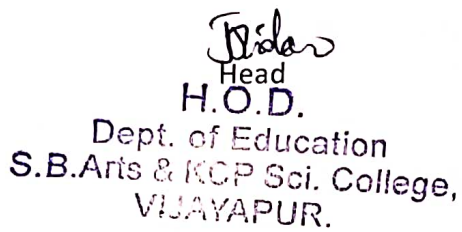 Head
H.O.D.
Dept. of Education
S.B.Arts & KCP Sci. College,
VIJAYAPUR.